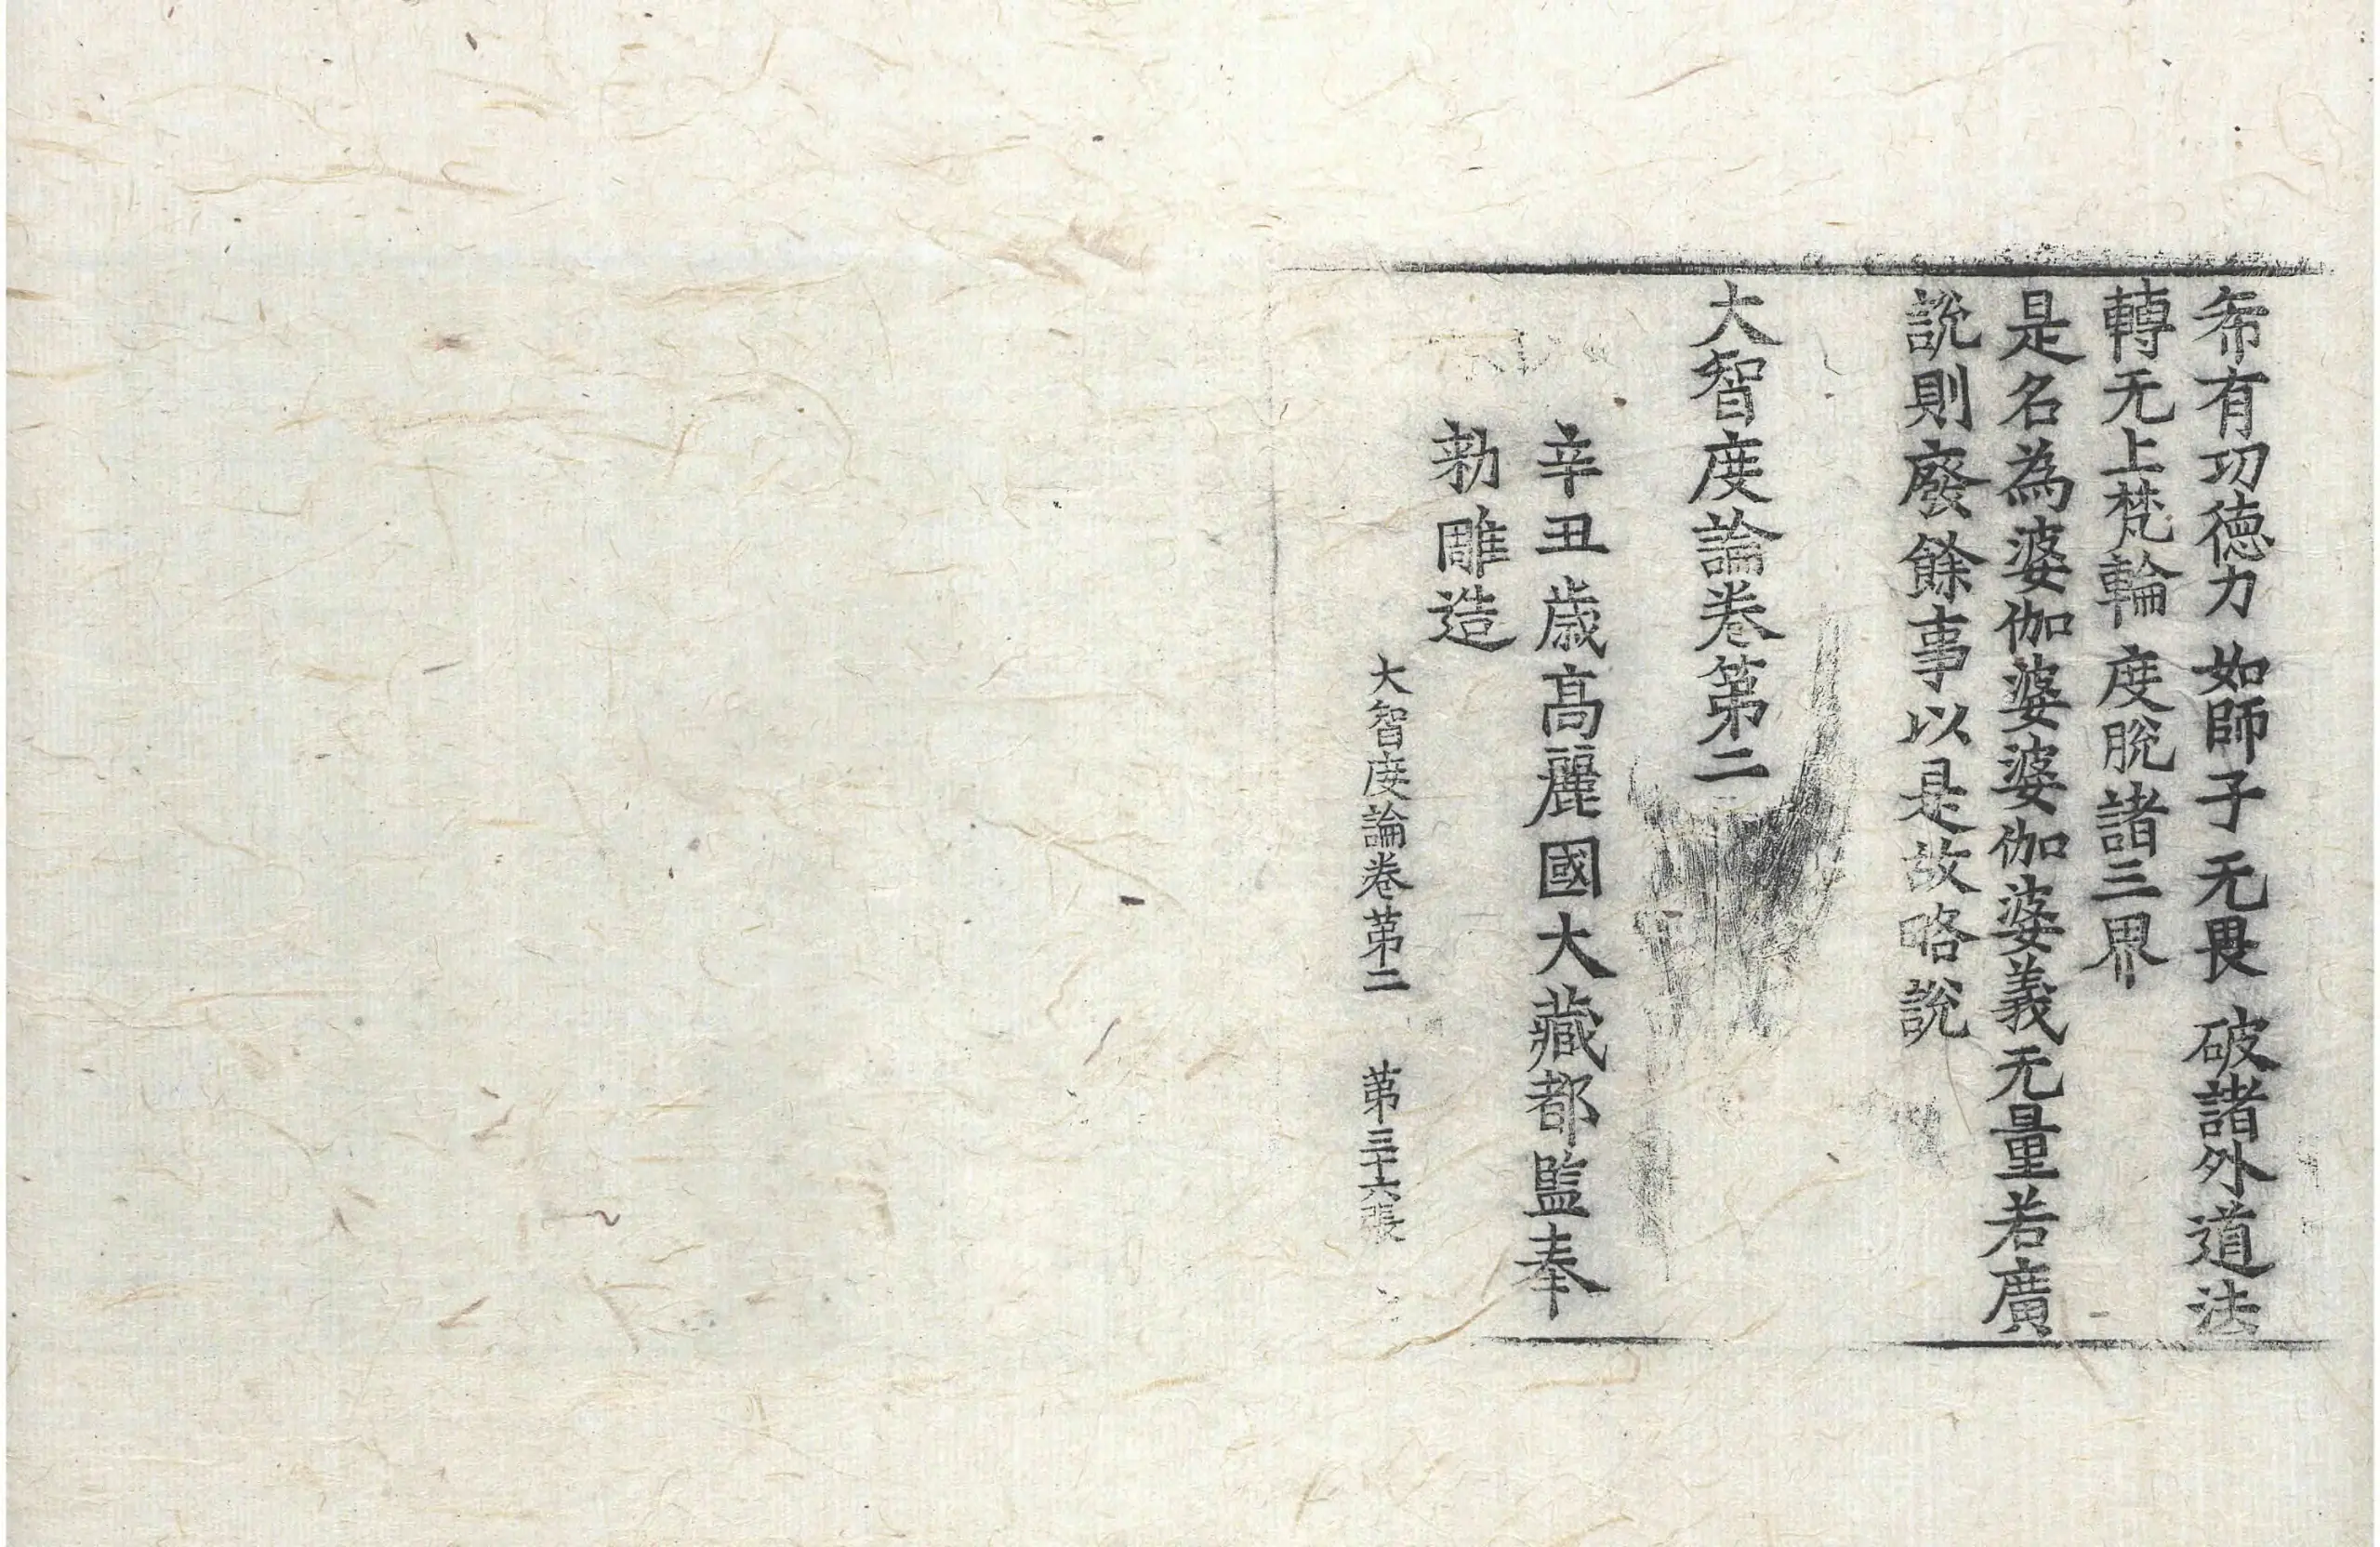 希有功德力 如師子无畏 破諸外道法
轉无上梵輪 度脫諸三界
是名為婆伽婆婆伽婆義无量若廣
說則廢餘事以是故略說
大智度論卷第二
辛丑歲高麗國大藏都監奉
勅雕造
大智度論卷第二 第三十六張